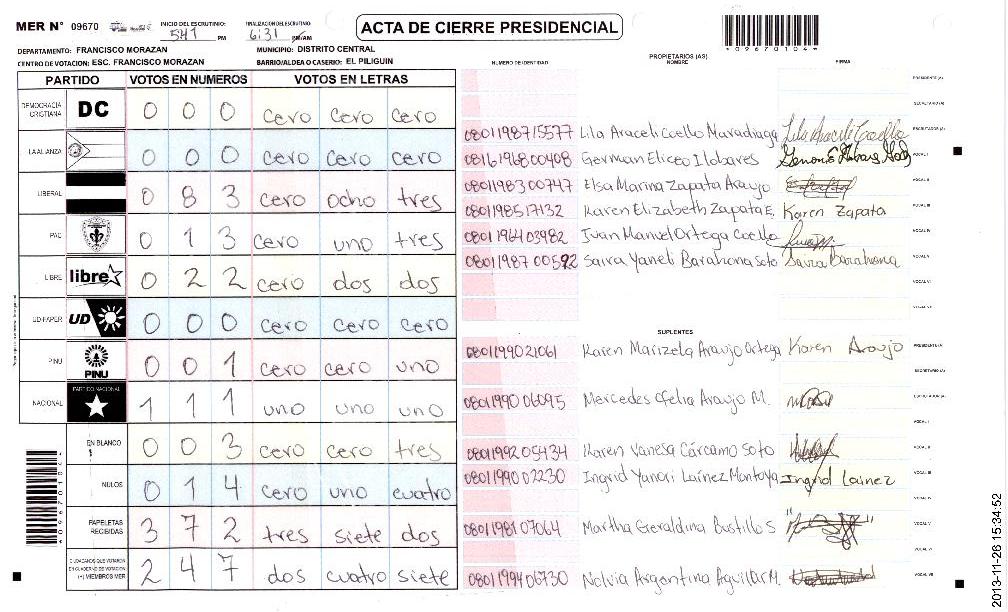 MER N° 09670 INICIO DEL ESCRUTINIO: 541 PM FINALIZACION DEL ESCRUTINIO 6:31 PM/AM ACTA DE CIERRE PRESIDENCIAL
*09670104*
DEPARTAMENTO: FRANCISCO MORAZAN MUNICIPIO: DISTRITO CENTRAL
CENTRO DE VOTACION: ESC. FRANCISCO MORAZAN BARRIO/ALDEA O CASERIO: EL PILIGUIN
NUMERO DE IDENTIDAD PROPIETARIOS (AS) NOMBRE FIRMA
PARTIDO VOTOS EN NUMEROS VOTOS EN LETRAS
PRESIDENTE (A)
DEMOCRACIA CRISTIANA DC 0 0 0 cero cero cero
SECRETARIO (A)
0801198715577 Lila Araceli Coello Maradiaga Lila Araceli Coello ESCRUTADOR (A)
LA ALIANZA 0 0 0 cero cero cero
0816196800408 German Eliceo Ilobares VOCAL I
LIBERAL 0 8 3 cero ocho tres
0801198300747 Elsa Marina Zapata Araujo VOCAL II
0801198517132 Karen Elizabeth Zapata E. Karen Zapata VOCAL III
PAC 0 1 3 cero uno tres
0801196403982 Juan Manuel Ortega Coello VOCAL IV
0801198700592 Saira Yaneli Barahona Soto Saira Barahona VOCAL V
LIBRE libre 0 2 2 cero dos dos
VOCAL VI
VOCAL VII
UD FAPER UD 0 0 0 cero cero cero
SUPLENTES
PINU PINU 0 0 1 cero cero uno
0801199021061 Karen Marizela Araujo Ortega Karen Araujo PRESIDENTE (A)
SECRETARIO (A)
NACIONAL PARTIDO NACIONAL 1 1 1 uno uno uno
0801199006095 Mercedes Ofelia Araujo M. ESCRUTADOR (A)
VOCAL I
EN BLANCO 0 0 3 cero cero tres
0801199205434 Karen Vanesa Cárcamo Soto VOCAL II
NULOS 0 1 4 cero uno cuatro
0801199002230 Ingrid Yanori Laínez Montoya Ingrid Lainez VOCAL III
VOCAL IV
PAPELETAS RECIBIDAS 3 7 2 tres siete dos
0801198107064 Martha Geraldina Bustillo S VOCAL V
VOCAL VI
CIUDADANOS QUE VOTARON EN CUADERNO DE VOTACION (+) MIEMBROS MER 2 4 7 dos cuatro siete
0801199406730 Nolvia Argentina Aguilar M. VOCAL VII
*09670104*
2013-11-26 15:34:52